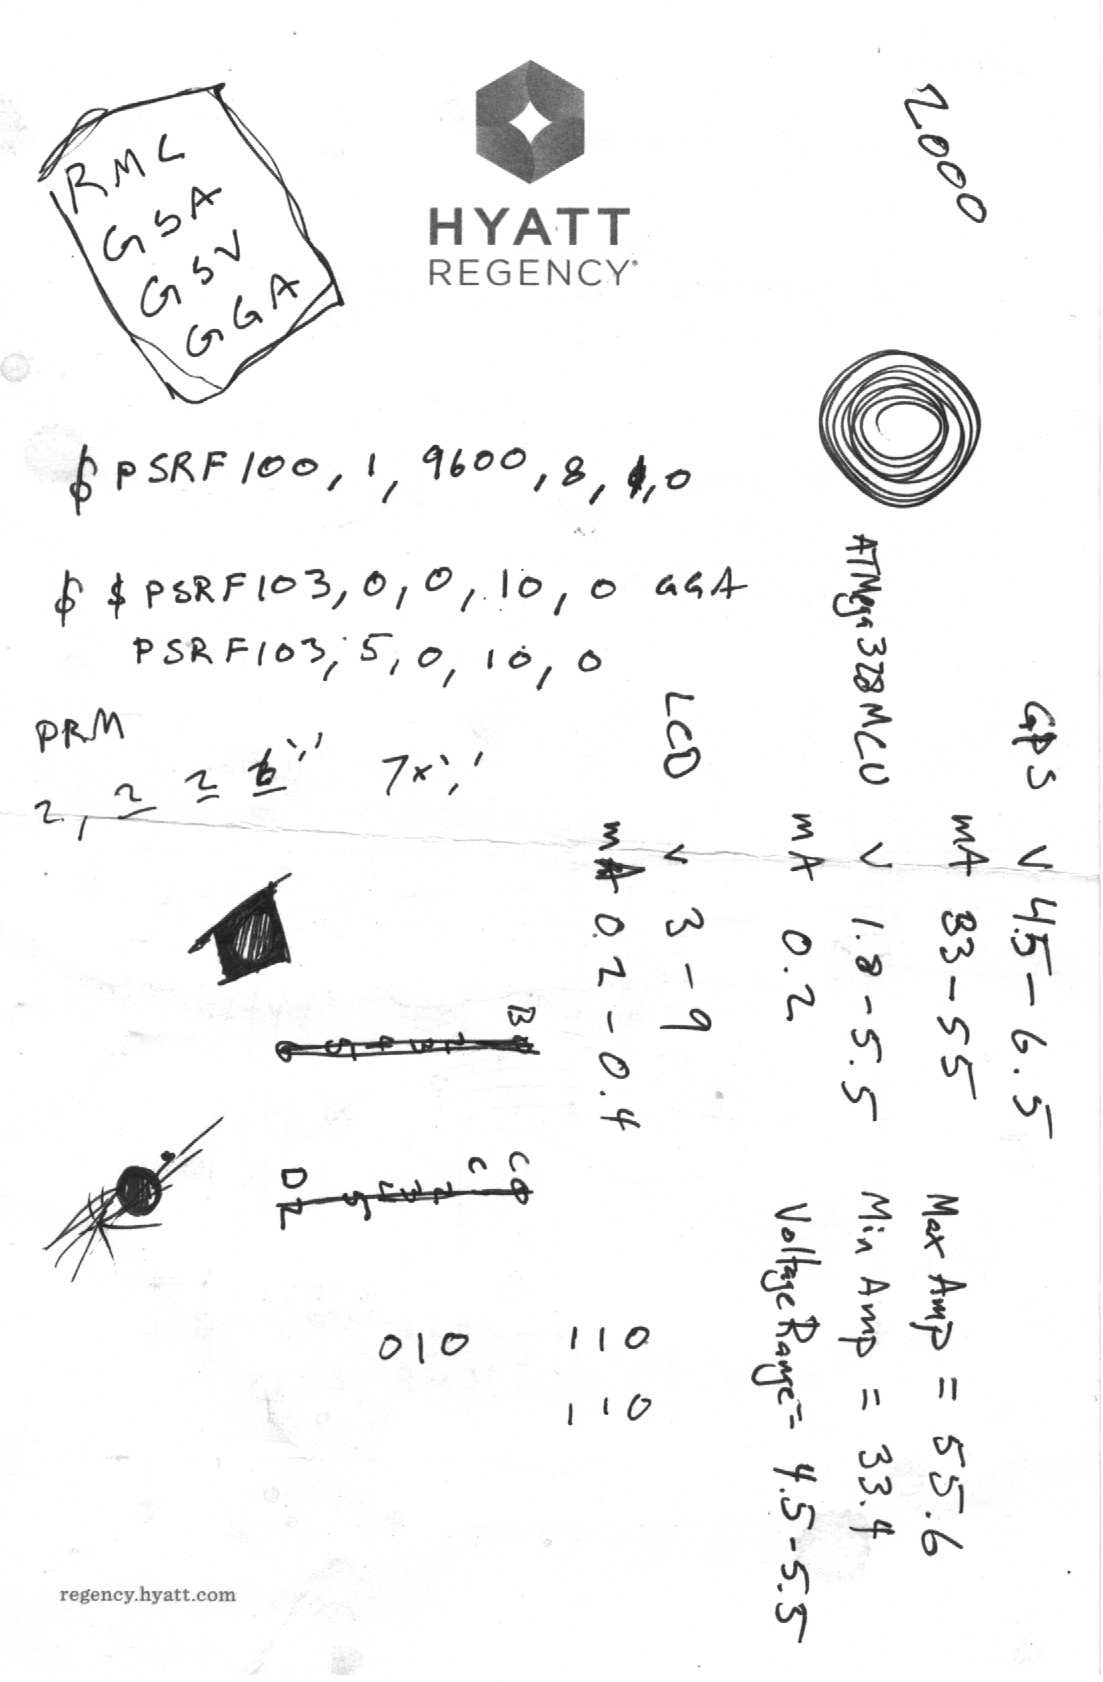 HYATT
REGENCY
2000
RMC
GSA
GSV
GGA
$PSRF100, 1, 9600, 8, 1, 0
$ $PSRF103, 0, 0, 10, 0 GGA
PSRF103, 5, 0, 10, 0
PRM
2, 2 2 6
7x
GPS V 4.5-6.5
mA 33-55
ATMega328 MCU V 1.8-5.5
mA 0.2
LCD V 3-9
mA 0.2-0.4
Max Amp = 55.6
Min Amp = 33.4
Voltage Range = 4.5-5.5
010 110
110
regency.hyatt.com